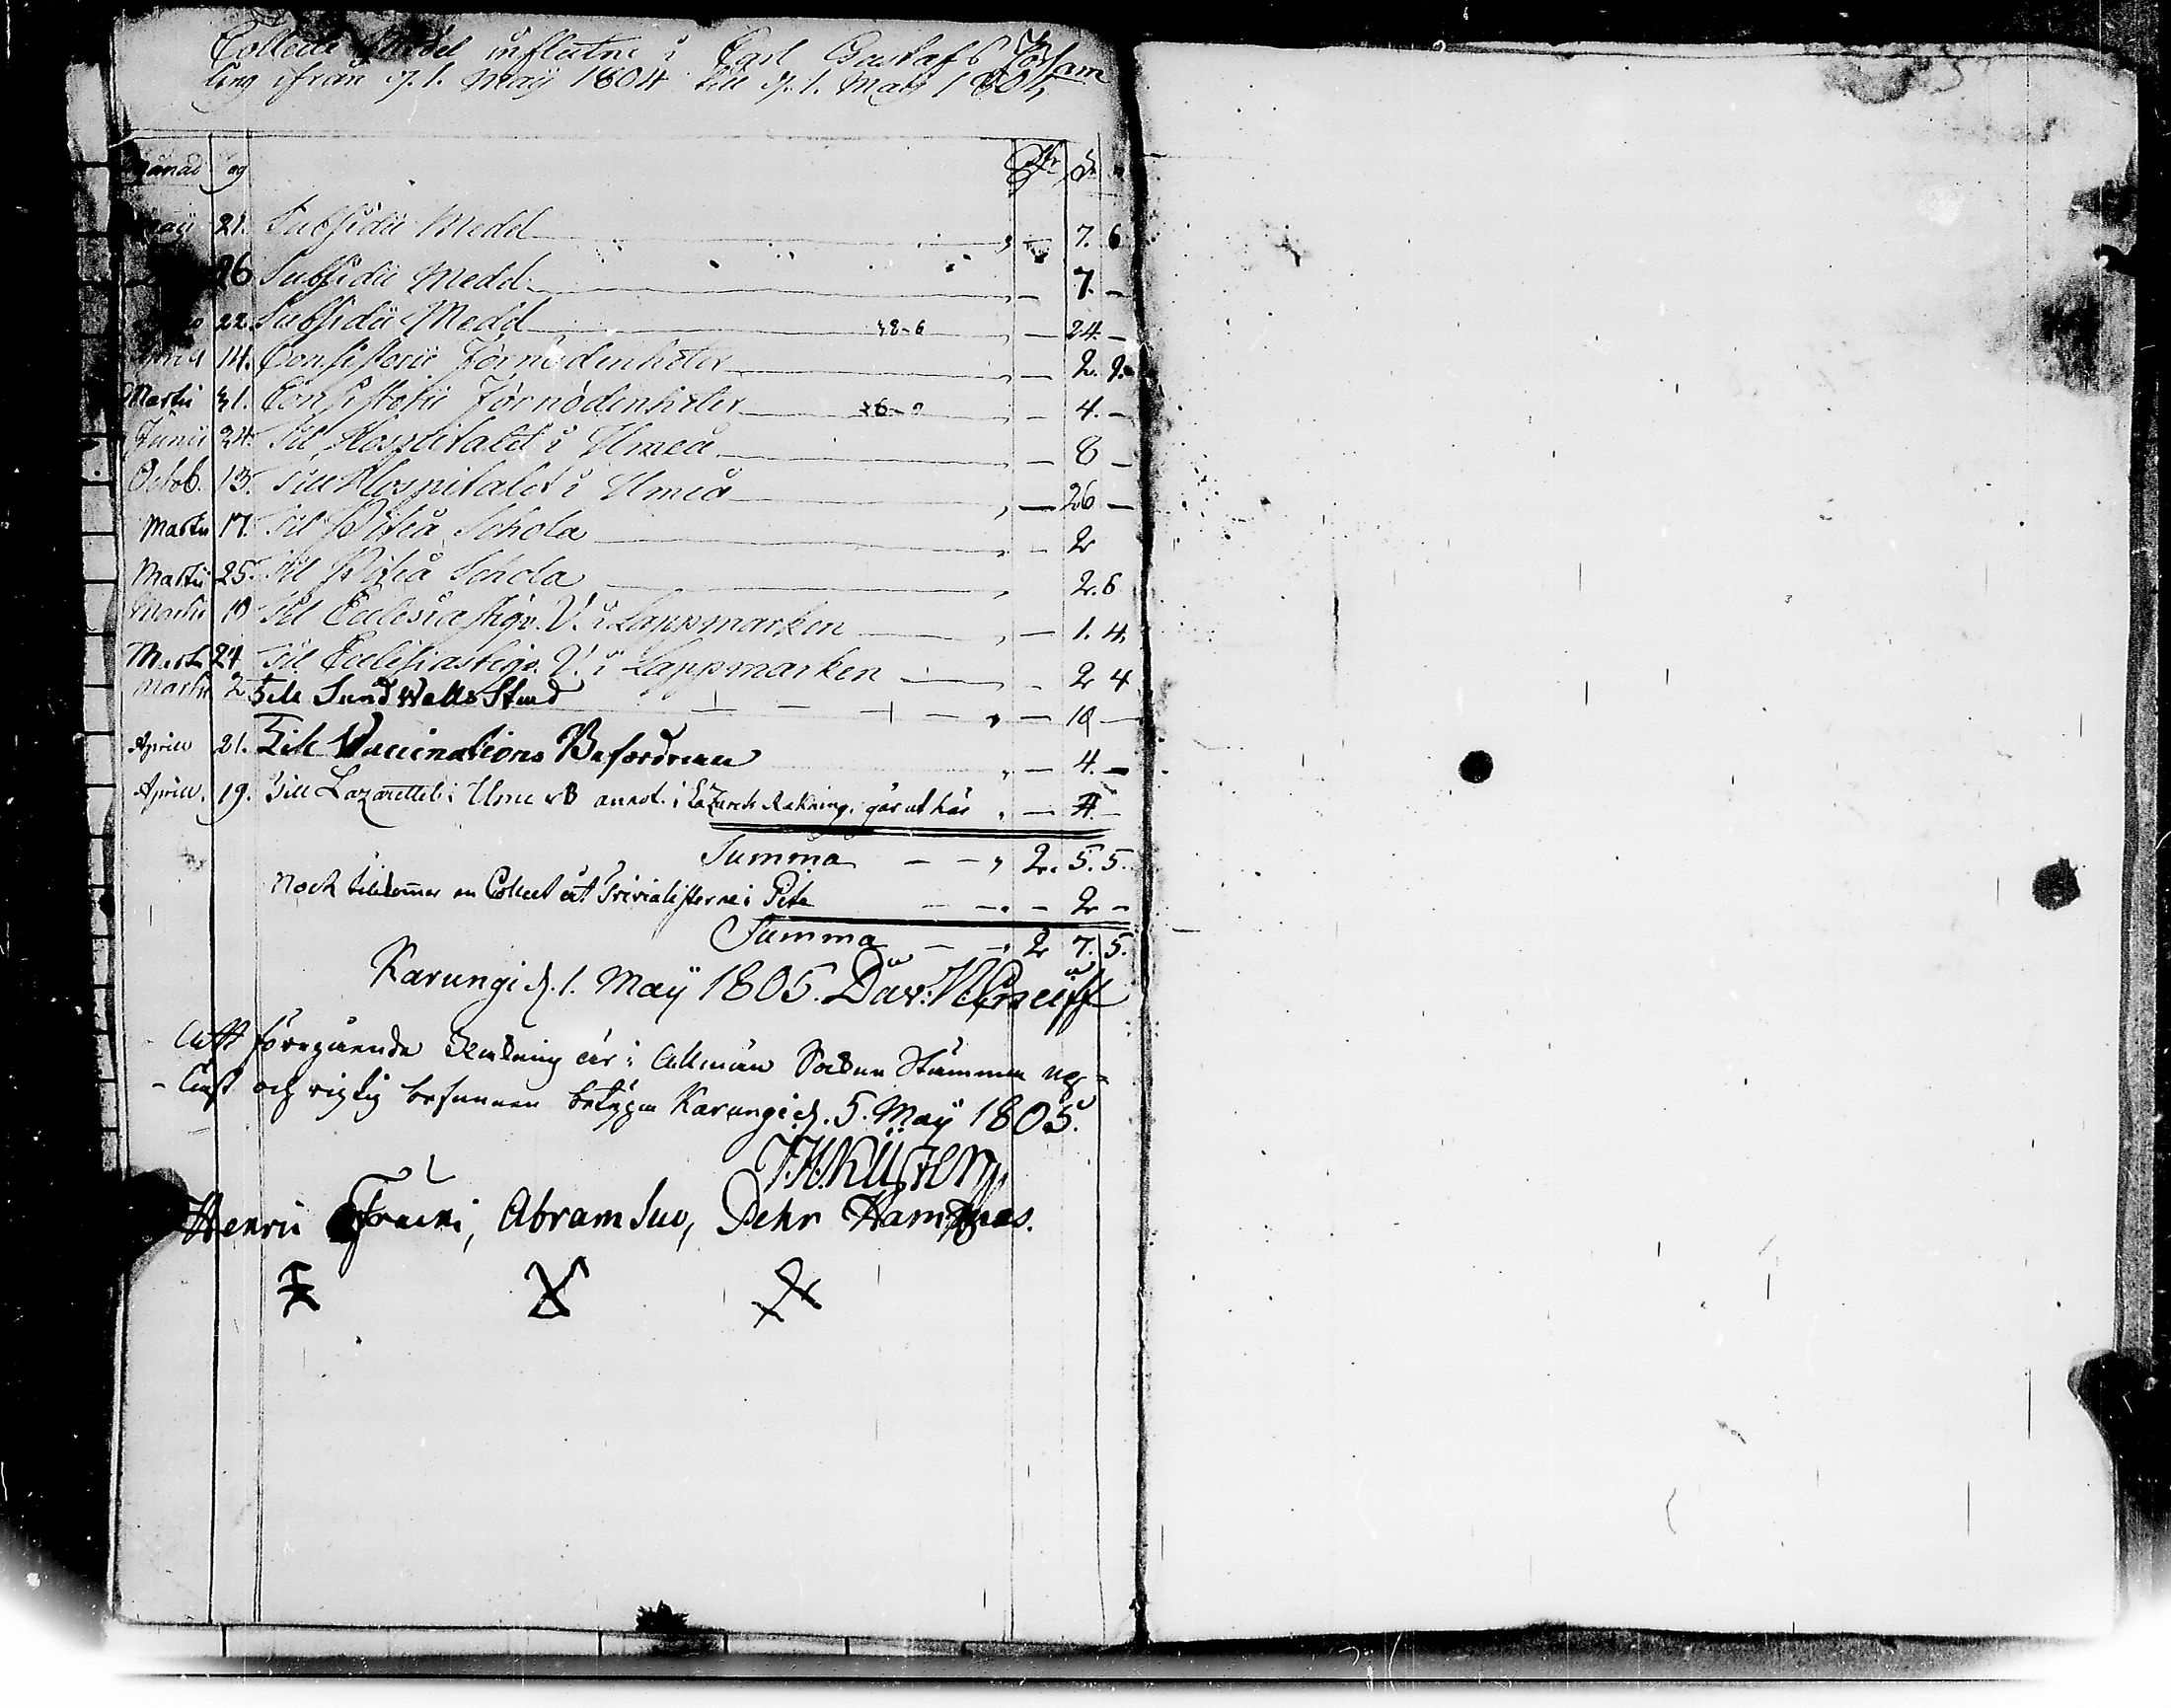 Collect Medel influtne i Carl Gustafs Försam
ling ifrån d. 1. Maÿ 1804 till d. 1. Maÿ 1805
Månad Dag
Maÿ 21. Subsidii Medel 7. 6
26 Subsidii Medel 7. -
22. Subsidii Medel 38-6 - 24. -
14. Consistorii Förnödenheter - 2. 9.
Martii 31. Consistorii Förnödenheter - 4. -
Junii 24. Till Hospitalet i Umeå - 8 -
Octob. 13. Till Hospitalet i Umeå - 26 -
Martii 17. Till Piteå Schola - 2
Martii 25. Till Piteå Schola 2. 6
Martii 10 Till Ecclesiastiqv. V. i Lappmarken - 1. 4.
Mart. 24 Till Ecclesiastiqv. V. i Lappmarken - 2 4
Martii 2 Till Sundwalls Stad - 10 -
Aprill 21. Till Vaccinations Befordran - 4. -
Aprill. 19. Till Lazarettet i Ume annot. i Lazarets Räkning. går ut här
Summa - - 2. 5. 5.
Noch tillkommer en Collect åt Trivialisterne i Pite - - 2 -
Summa - - 2 7. 5.
Karungi d. 1. Maÿ 1805. Dav:
Att föregående Räkning är i Allmän Sockne Stämma up-
-läst och rigtig befunnen betygar Karungi d. 5. Maÿ 1805.
Henric Fracki, Abram Suo, Pehr